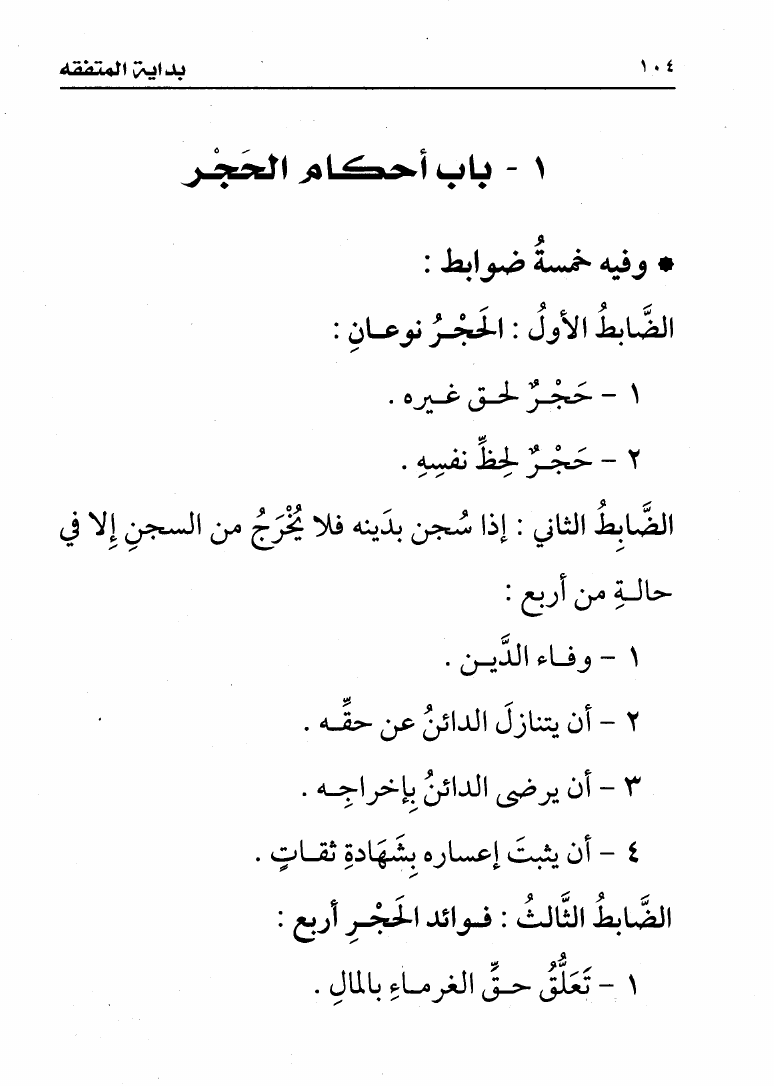 ١٠٤ بداية المتفقه
١ - باب أحكام الحَجْر
* وفيه خمسةُ ضوابط :
الضَّابطُ الأولُ : الحَجْرُ نوعانِ :
١ - حَجْرٌ لحق غيره .
٢ - حَجْرٌ لِحظِّ نفسِهِ .
الضَّابِطُ الثاني : إذا سُجن بدَينه فلا يُخْرَجُ من السجنِ إلا في
حالةِ من أربع :
١ - وفاء الدَّين .
٢ - أن يتنازلَ الدائنُ عن حقِّه .
٣ - أن يرضى الدائنُ بِإخراجِه .
٤ - أن يثبتَ إعساره بِشَهَادةِ ثقاتٍ .
الضَّابطُ الثَّالثُ : فوائد الحَجْرِ أربع :
١ - تَعَلُّقُ حقِّ الغرماءِ بالمالِ .